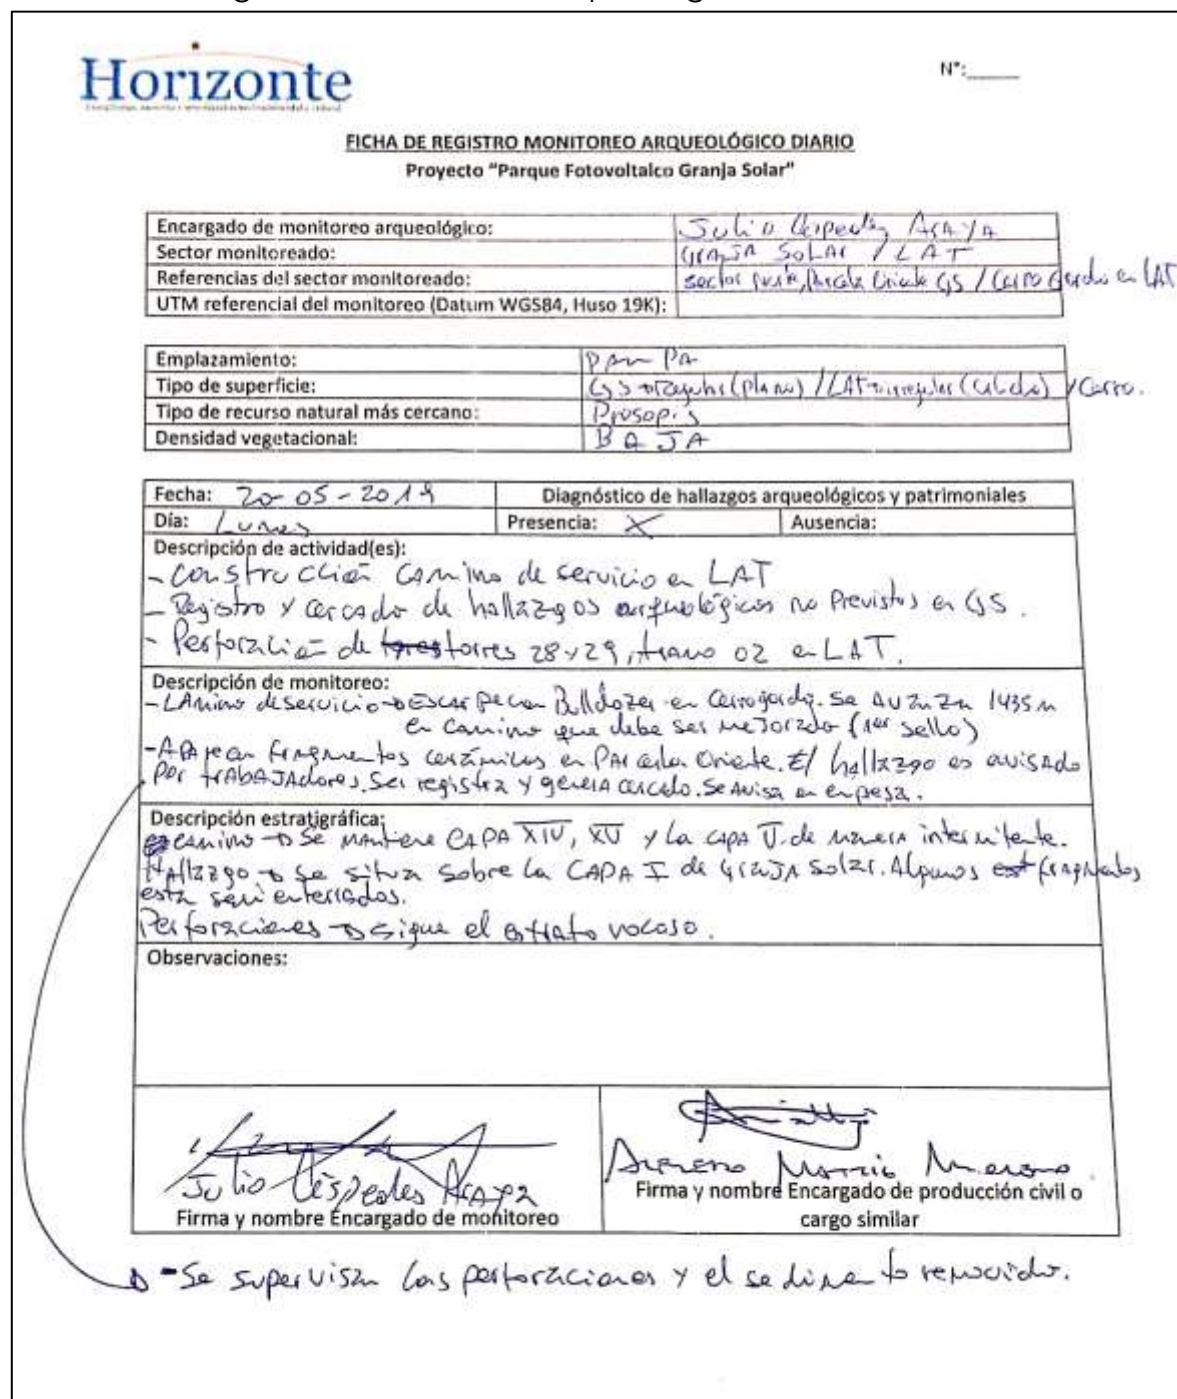 Horizonte
N°:
FICHA DE REGISTRO MONITOREO ARQUEOLÓGICO DIARIO
Proyecto "Parque Fotovoltaico Granja Solar"
Encargado de monitoreo arqueológico: Julio Céspedes Araya
Sector monitoreado: Granja Solar / LAT
Referencias del sector monitoreado: sector Oriente GS / Cerro Gordo en LAT
UTM referencial del monitoreo (Datum WGS84, Huso 19K):
Emplazamiento: PAMPA
Tipo de superficie: GS → regular (plano) / LAT → irregular y Cerro.
Tipo de recurso natural más cercano: Prosopis
Densidad vegetacional: BAJA
Fecha: 20-05-2019 Diagnóstico de hallazgos arqueológicos y patrimoniales
Día: Lunes Presencia: X Ausencia:
Descripción de actividad(es):
- Construcción camino de servicio en LAT
- Registro y cercado de hallazgos arqueológicos no Previstos en GS.
- Perforación de torres 28 y 29, tramo 02 en LAT.
Descripción de monitoreo:
- Camino de servicio → Escarpe con Bulldozer en Cerro gordo. Se avanzan 1435 m
en camino que debe ser mejorado (1er sello)
- Aparecen fragmentos cerámicos en Parcela Oriente. El hallazgo es avisado
por trabajadores. Se registra y genera cercado. Se avisa en empresa.
Descripción estratigráfica:
camino → Se mantiene CAPA XIV, XV y la capa V de manera intermitente.
Hallazgo → Se sitúa sobre la CAPA I de Granja Solar. Algunos fragmentos
está semi enterrados.
Perforaciones → sigue el estrato rocoso.
Observaciones:
Julio Céspedes Araya
Firma y nombre Encargado de monitoreo
Firma y nombre Encargado de producción civil o
cargo similar
- Se supervisan las perforaciones y el sedimento removido.